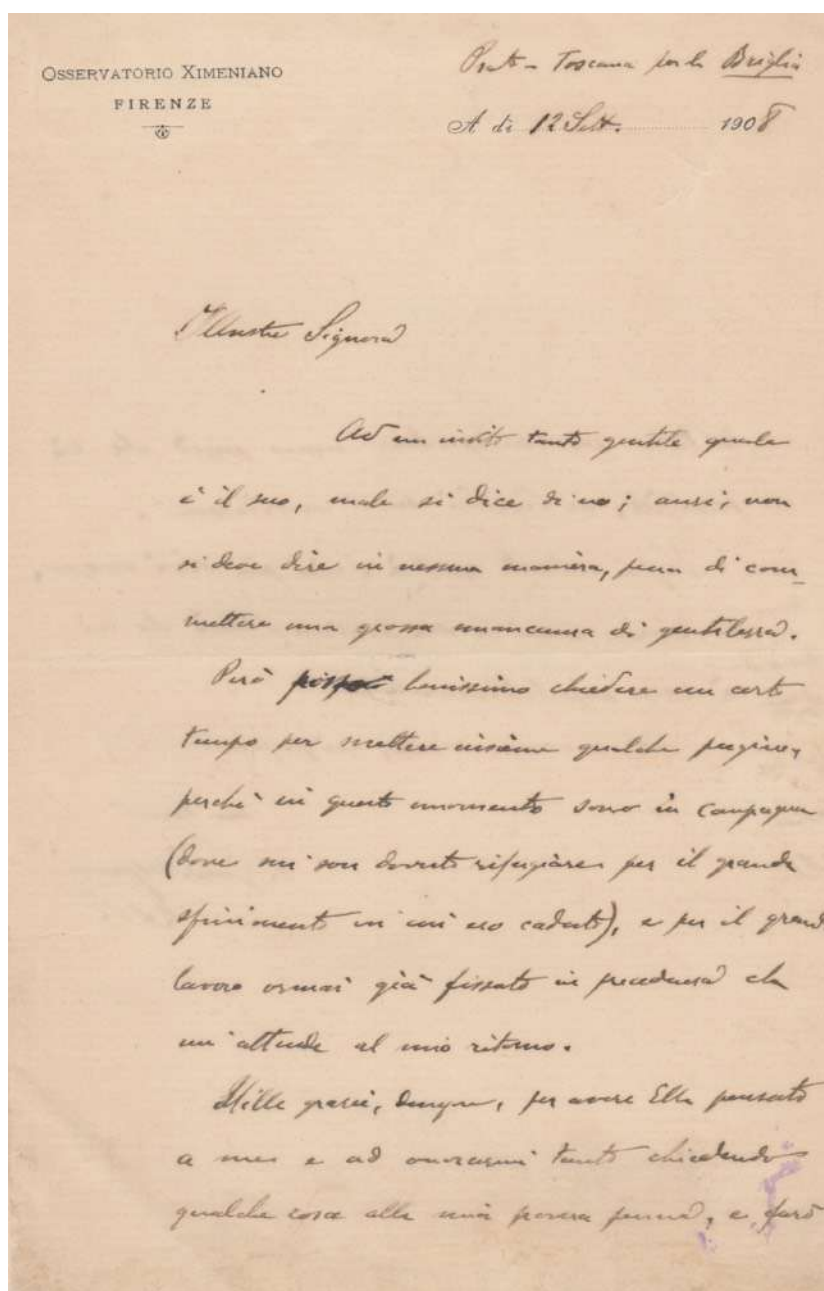 OSSERVATORIO XIMENIANO
FIRENZE
Prato - Toscana per la Briglia
A dì 12 Sett. 1908
Illustre Signora
Ad un invito tanto gentile quale
è il suo, male si dice di no; anzi, non
si deve dire in nessuna maniera, pena di com-
mettere una grossa mancanza di gentilezza.
Però benissimo chiedere un certo
tempo per mettere insieme qualche pagina,
perchè in questo momento sono in campagna
(dove mi son dovuto rifugiare per il grande
sfinimento in cui ero caduto), e per il grand
lavoro ormai già fissato in precedenza che
mi attende al mio ritorno.
Mille grazie, dunque, per avere Ella pensato
a me e ad onorarmi tanto chiedendo
qualche cosa alla mia povera penna, e farò